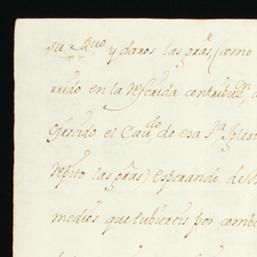 su Rno y daros las gras, (como
rrido en la referida contribucon,
ofrecido el Cavdo de esa Sta Igles
repito las gras) esperando de
medios que tubiereis por comb